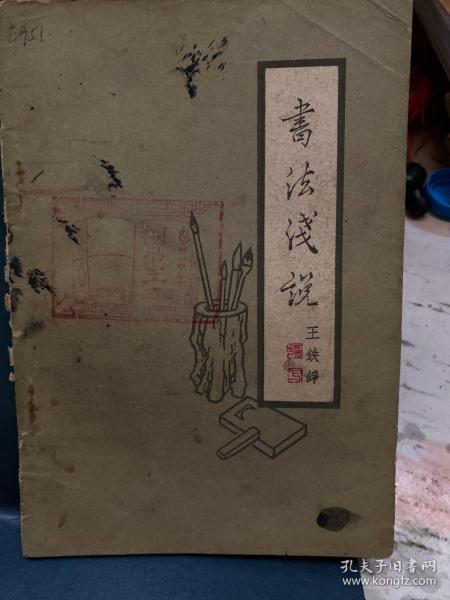 E951
書法淺説
王鉄錚
编写
孔夫子旧书网
www.kongfz.com